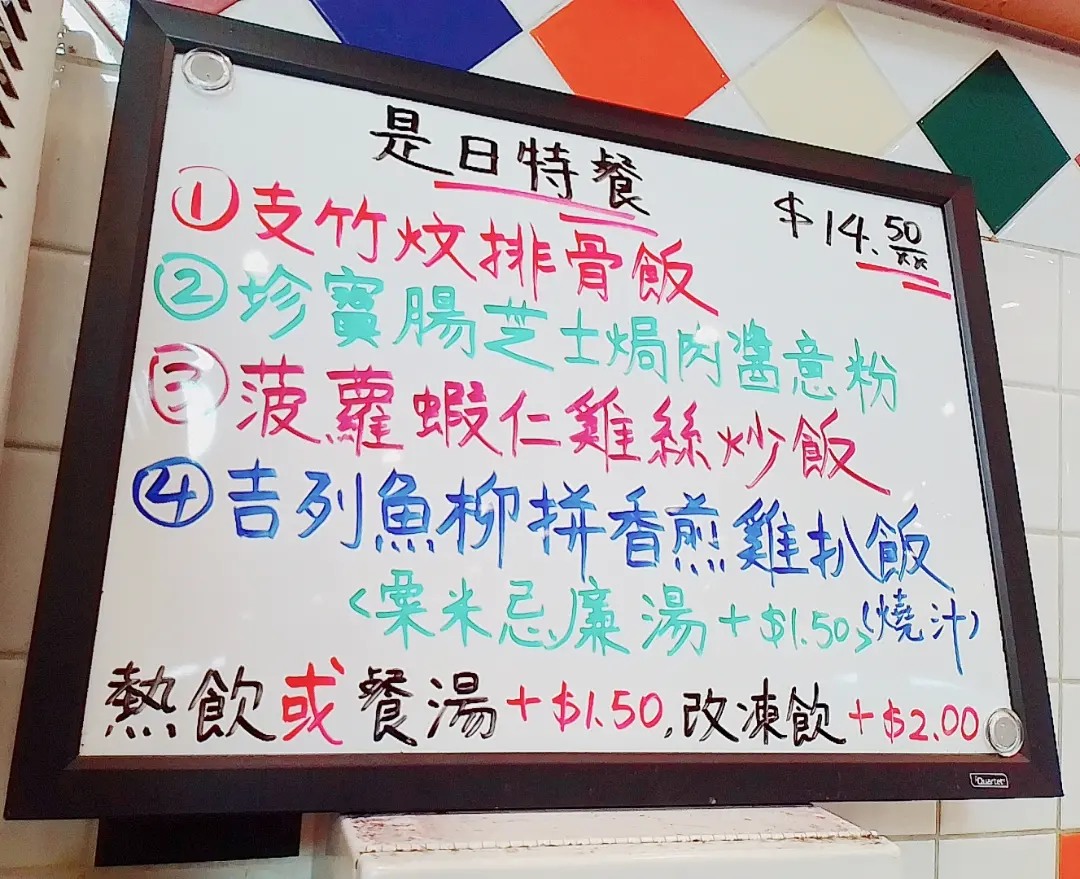 是日特餐
$14.50
① 支竹炆排骨飯
② 珍寶腸芝士焗肉醬意粉
③ 菠蘿蝦仁雞絲炒飯
④ 吉列魚柳拼香煎雞扒飯
<粟米忌廉湯+$1.50>(燒汁)
熱飲或餐湯+$1.50,改凍飲+$2.00
Quartet